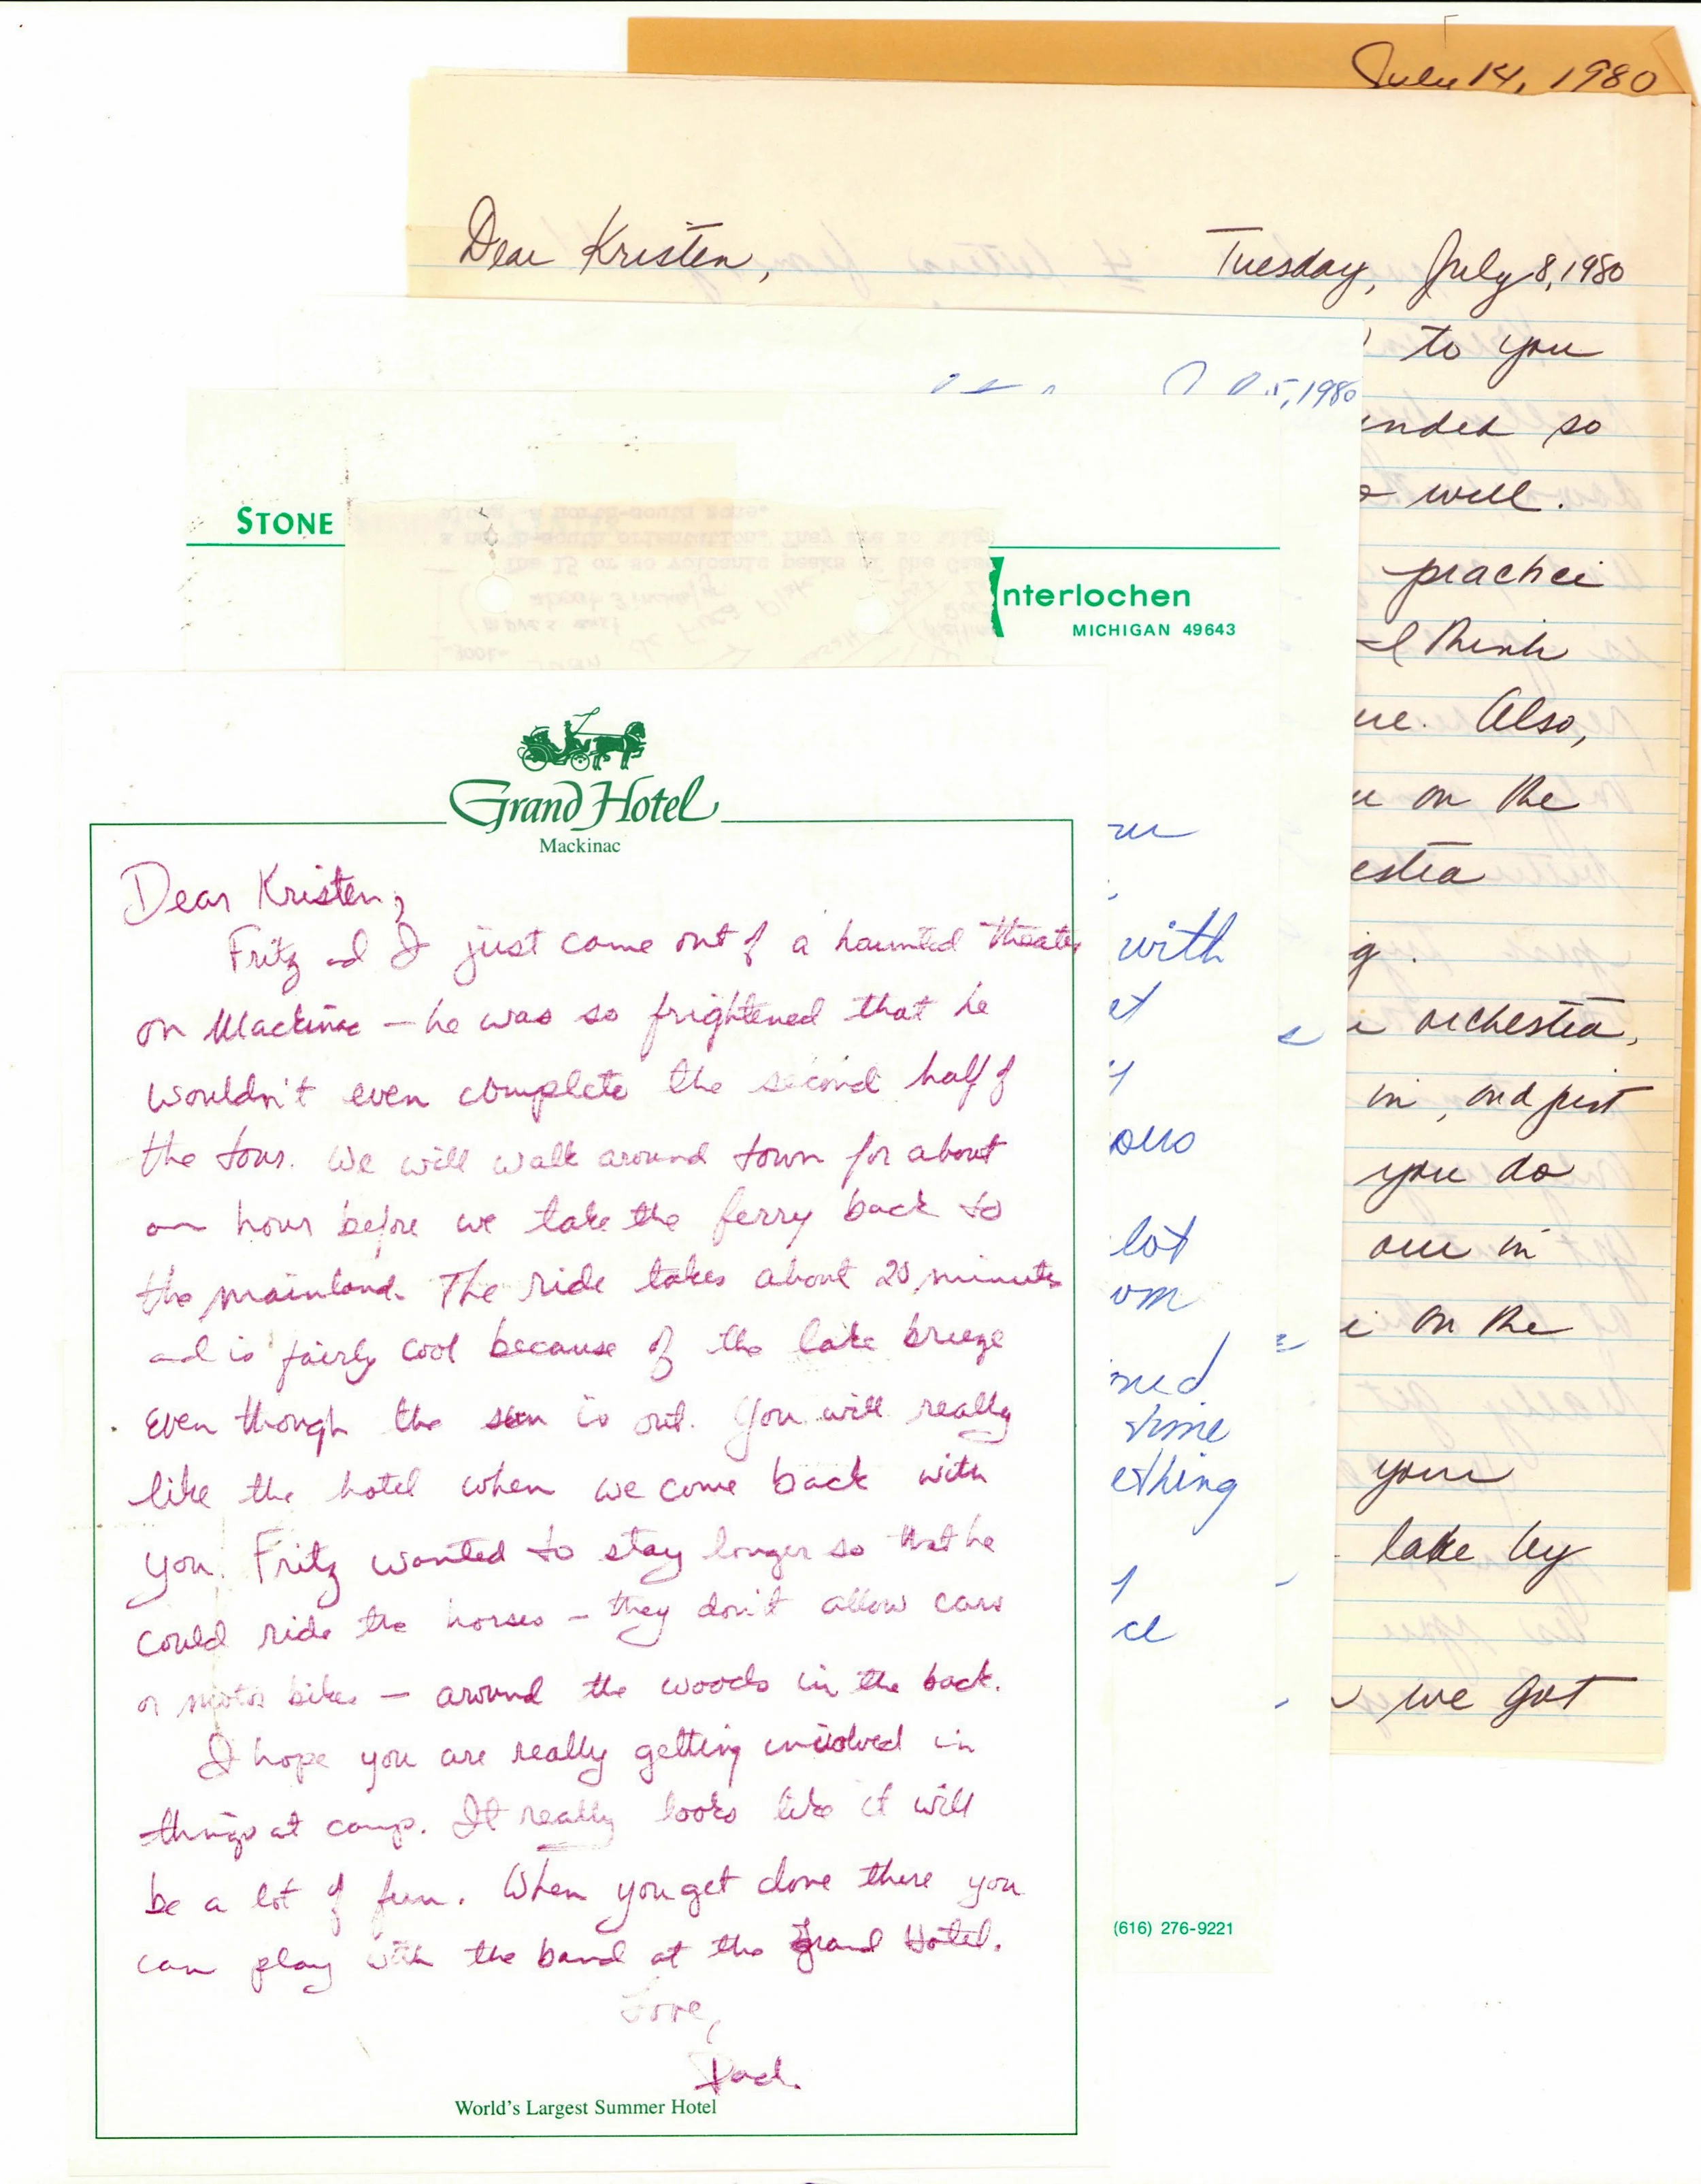 July 14, 1980
Dear Kristen,
Tuesday, July 8, 1980
to you
5, 1980
unded so
well.
STONE
practice
nterlochen
MICHIGAN 49643
I think
ure. Also,
on the
estra
orchestra,
in, and just
you do
are in
on the
your
lake by
we got
with
et
lot
om
time
ething
(616) 276-9221
Grand Hotel
Mackinac
Dear Kristen,
Fritz and I just came out of a haunted theater
on Mackinac — he was so frightened that he
wouldn't even complete the second half of
the tour. We will walk around town for about
an hour before we take the ferry back to
the mainland. The ride takes about 20 minutes
and is fairly cool because of the lake breeze
even though the sun is out. You will really
like the hotel when we come back with
you. Fritz wanted to stay longer so that he
could ride the horses — they don't allow cars
or motor bikes — around the woods in the back.
I hope you are really getting involved in
things at camp. It really looks like it will
be a lot of fun. When you get done there you
can play with the band at the Grand Hotel.
Love,
Dad.
World's Largest Summer Hotel